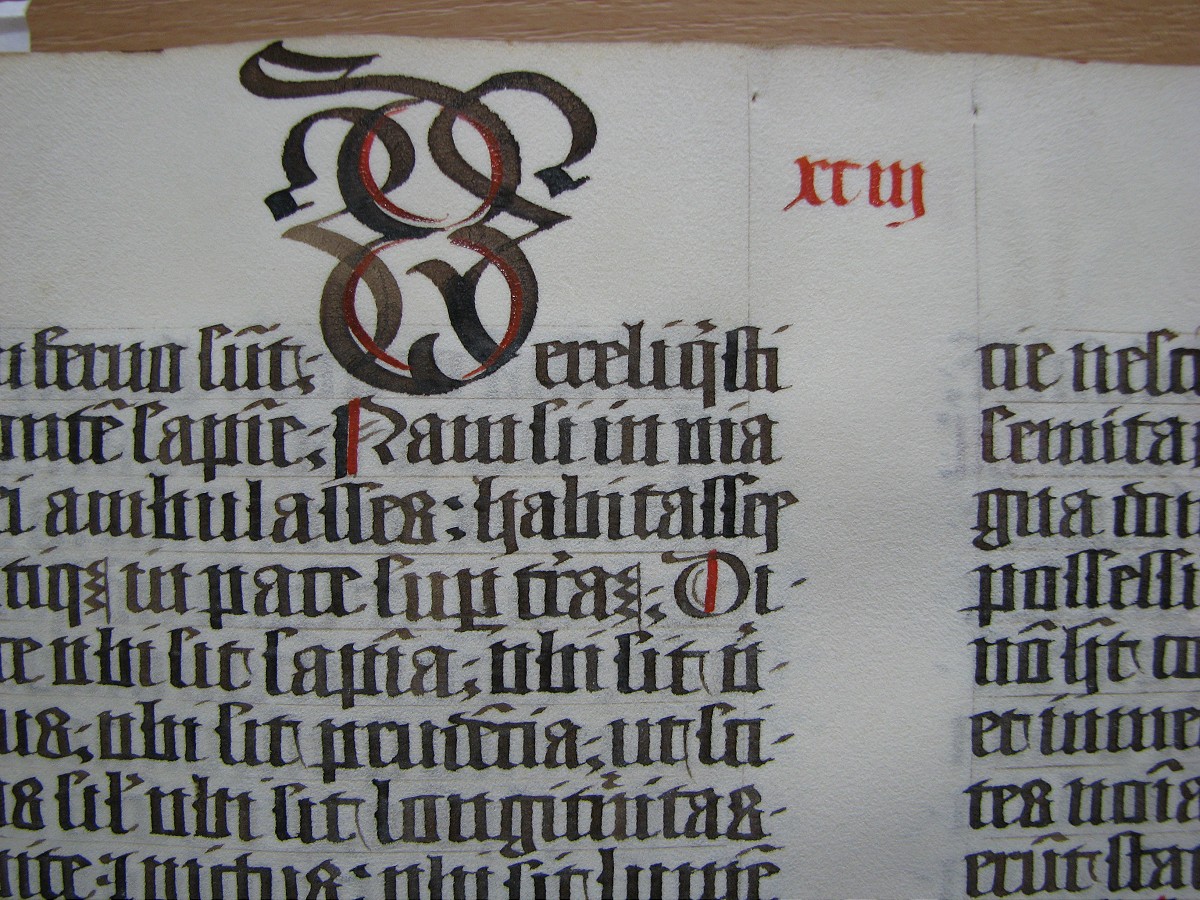 xciij
inferno sūt;
Dereliq̇sti
ontē sapīe; Nam si in via
ei ambulasses: habitasses
tiqꝫ in pace suꝑ trāꝫ; Di-
ce ubi sit sapīa; ubi sit v̇-
us; ubi sit prudēcia; ut sci-
as sil' ubi sit longitnitas-
uite ⁊ uictus: ubi sit lumē
cie nesc
semitas
gua do
possessi
nō
et inue
tes noīa
erūt sta